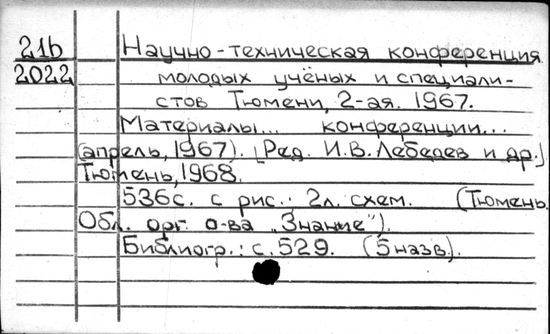 21b Научно-техническая конференция
2022 молодых учёных и специали-
стов Тюмени, 2-ая. 1967.
Материалы... конференции...
(апрель, 1967). [Ред. И.В. Лебедев и др.]
Тюмень, 1968.
536с. с рис.; 2л. схем. (Тюмень.
Обл. орг. о-ва „Знание").
Библиогр.: с. 529. (5 назв).